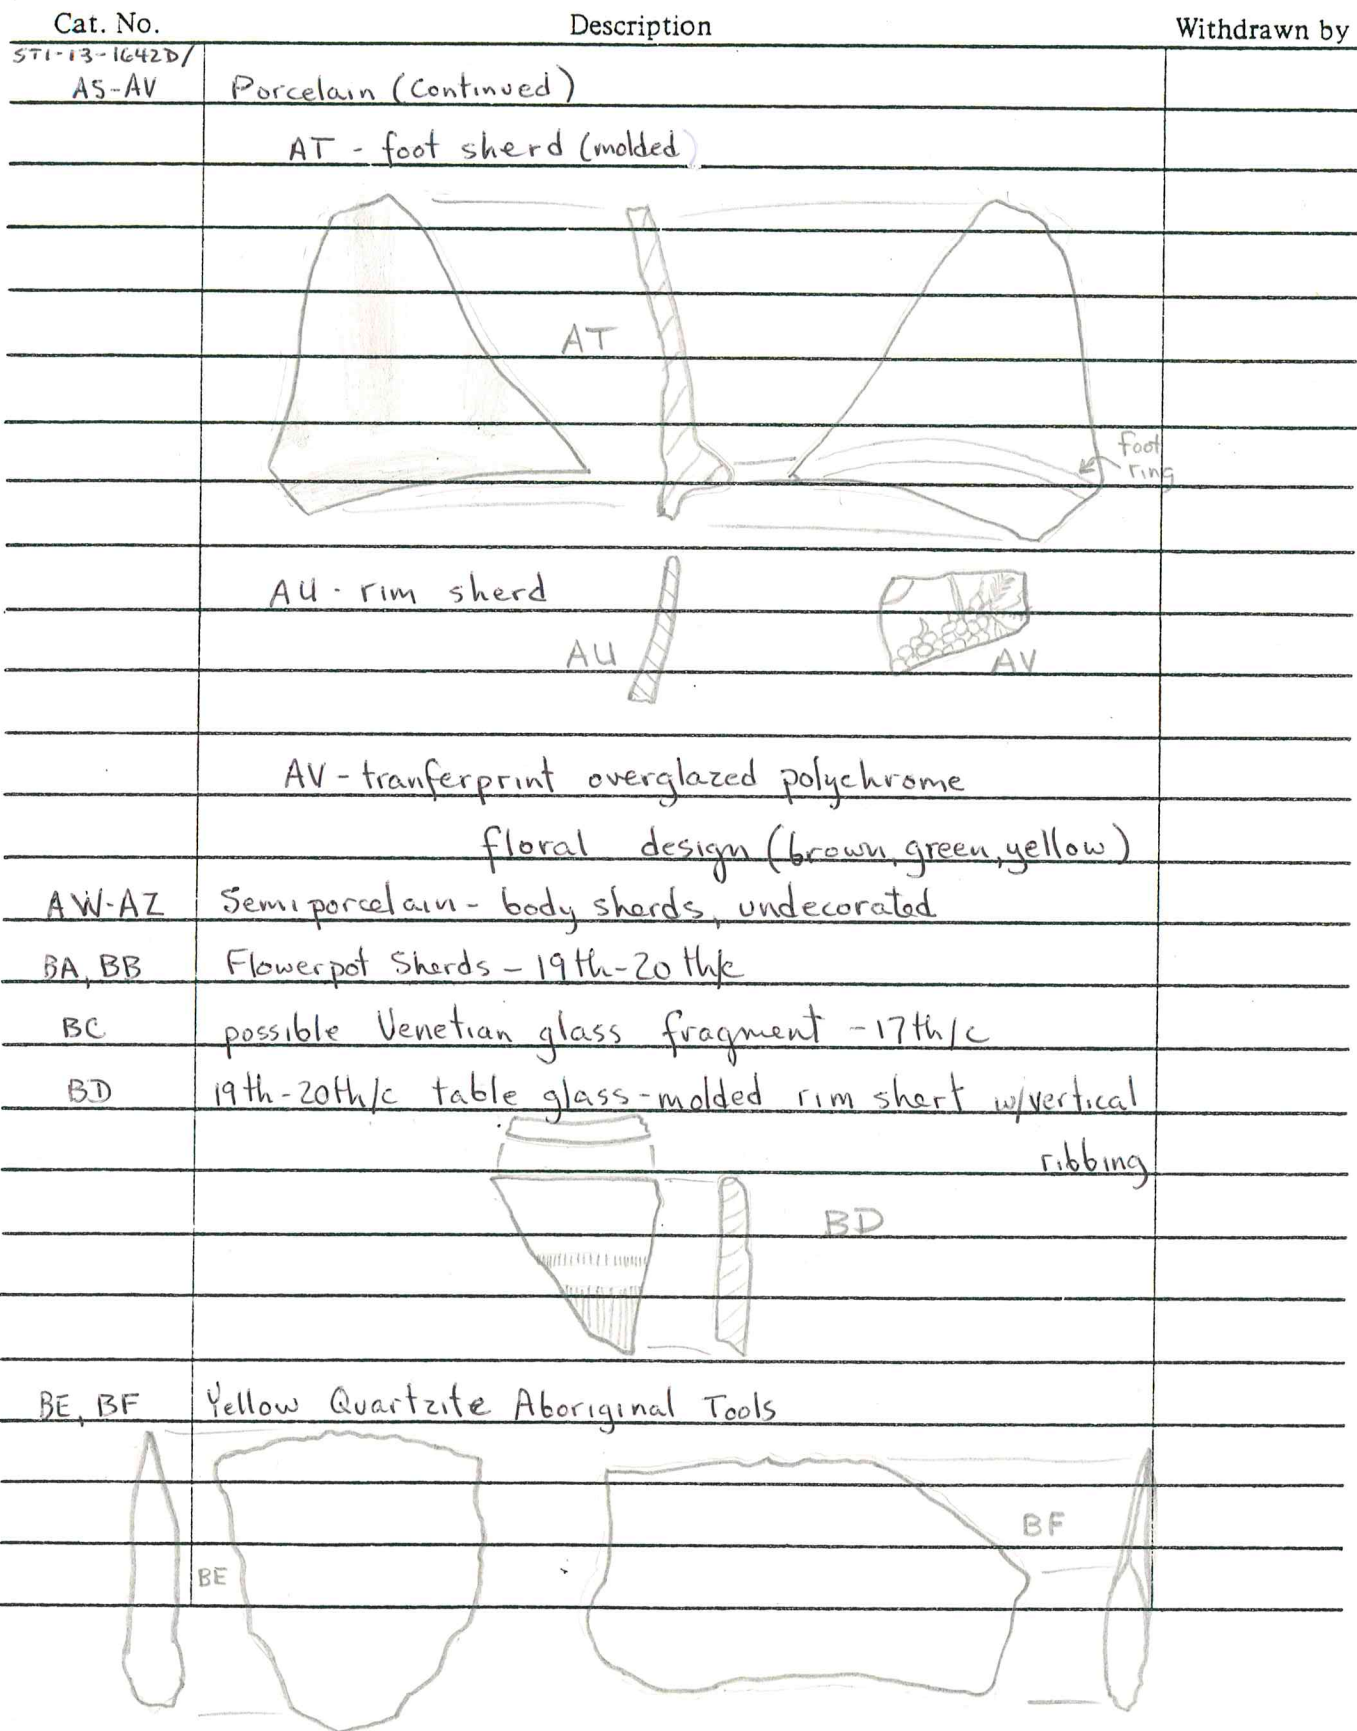 Cat. No. Description Withdrawn by
ST1-13-1642D/
AS-AV Porcelain (Continued)
AT - foot sherd (molded)
AT
foot
ring
AU - rim sherd
AU
AV
AV - tranferprint overglazed polychrome
floral design (brown, green, yellow)
AW-AZ Semiporcelain - body sherds, undecorated
BA, BB Flowerpot Sherds - 19th-20th/c
BC possible Venetian glass fragment - 17th/c
BD 19th-20th/c table glass - molded rim shert w/vertical
ribbing
BD
BE, BF Yellow Quartzite Aboriginal Tools
BF
BE